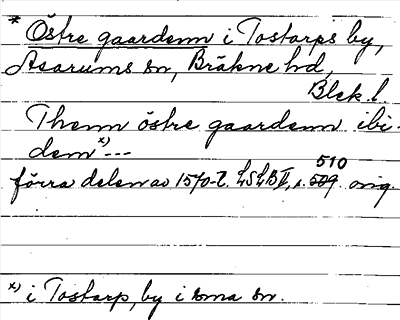 * Östre gaardenn i Tostarps by,
Asarums sn, Bräkne hd,
Blek. l.
Thenn östre gaardenn ibi-
dem x) ---
förra delen av 1570-t. LSLBII, s. 509 510 orig.
x) i Tostarp, by i sma sn.